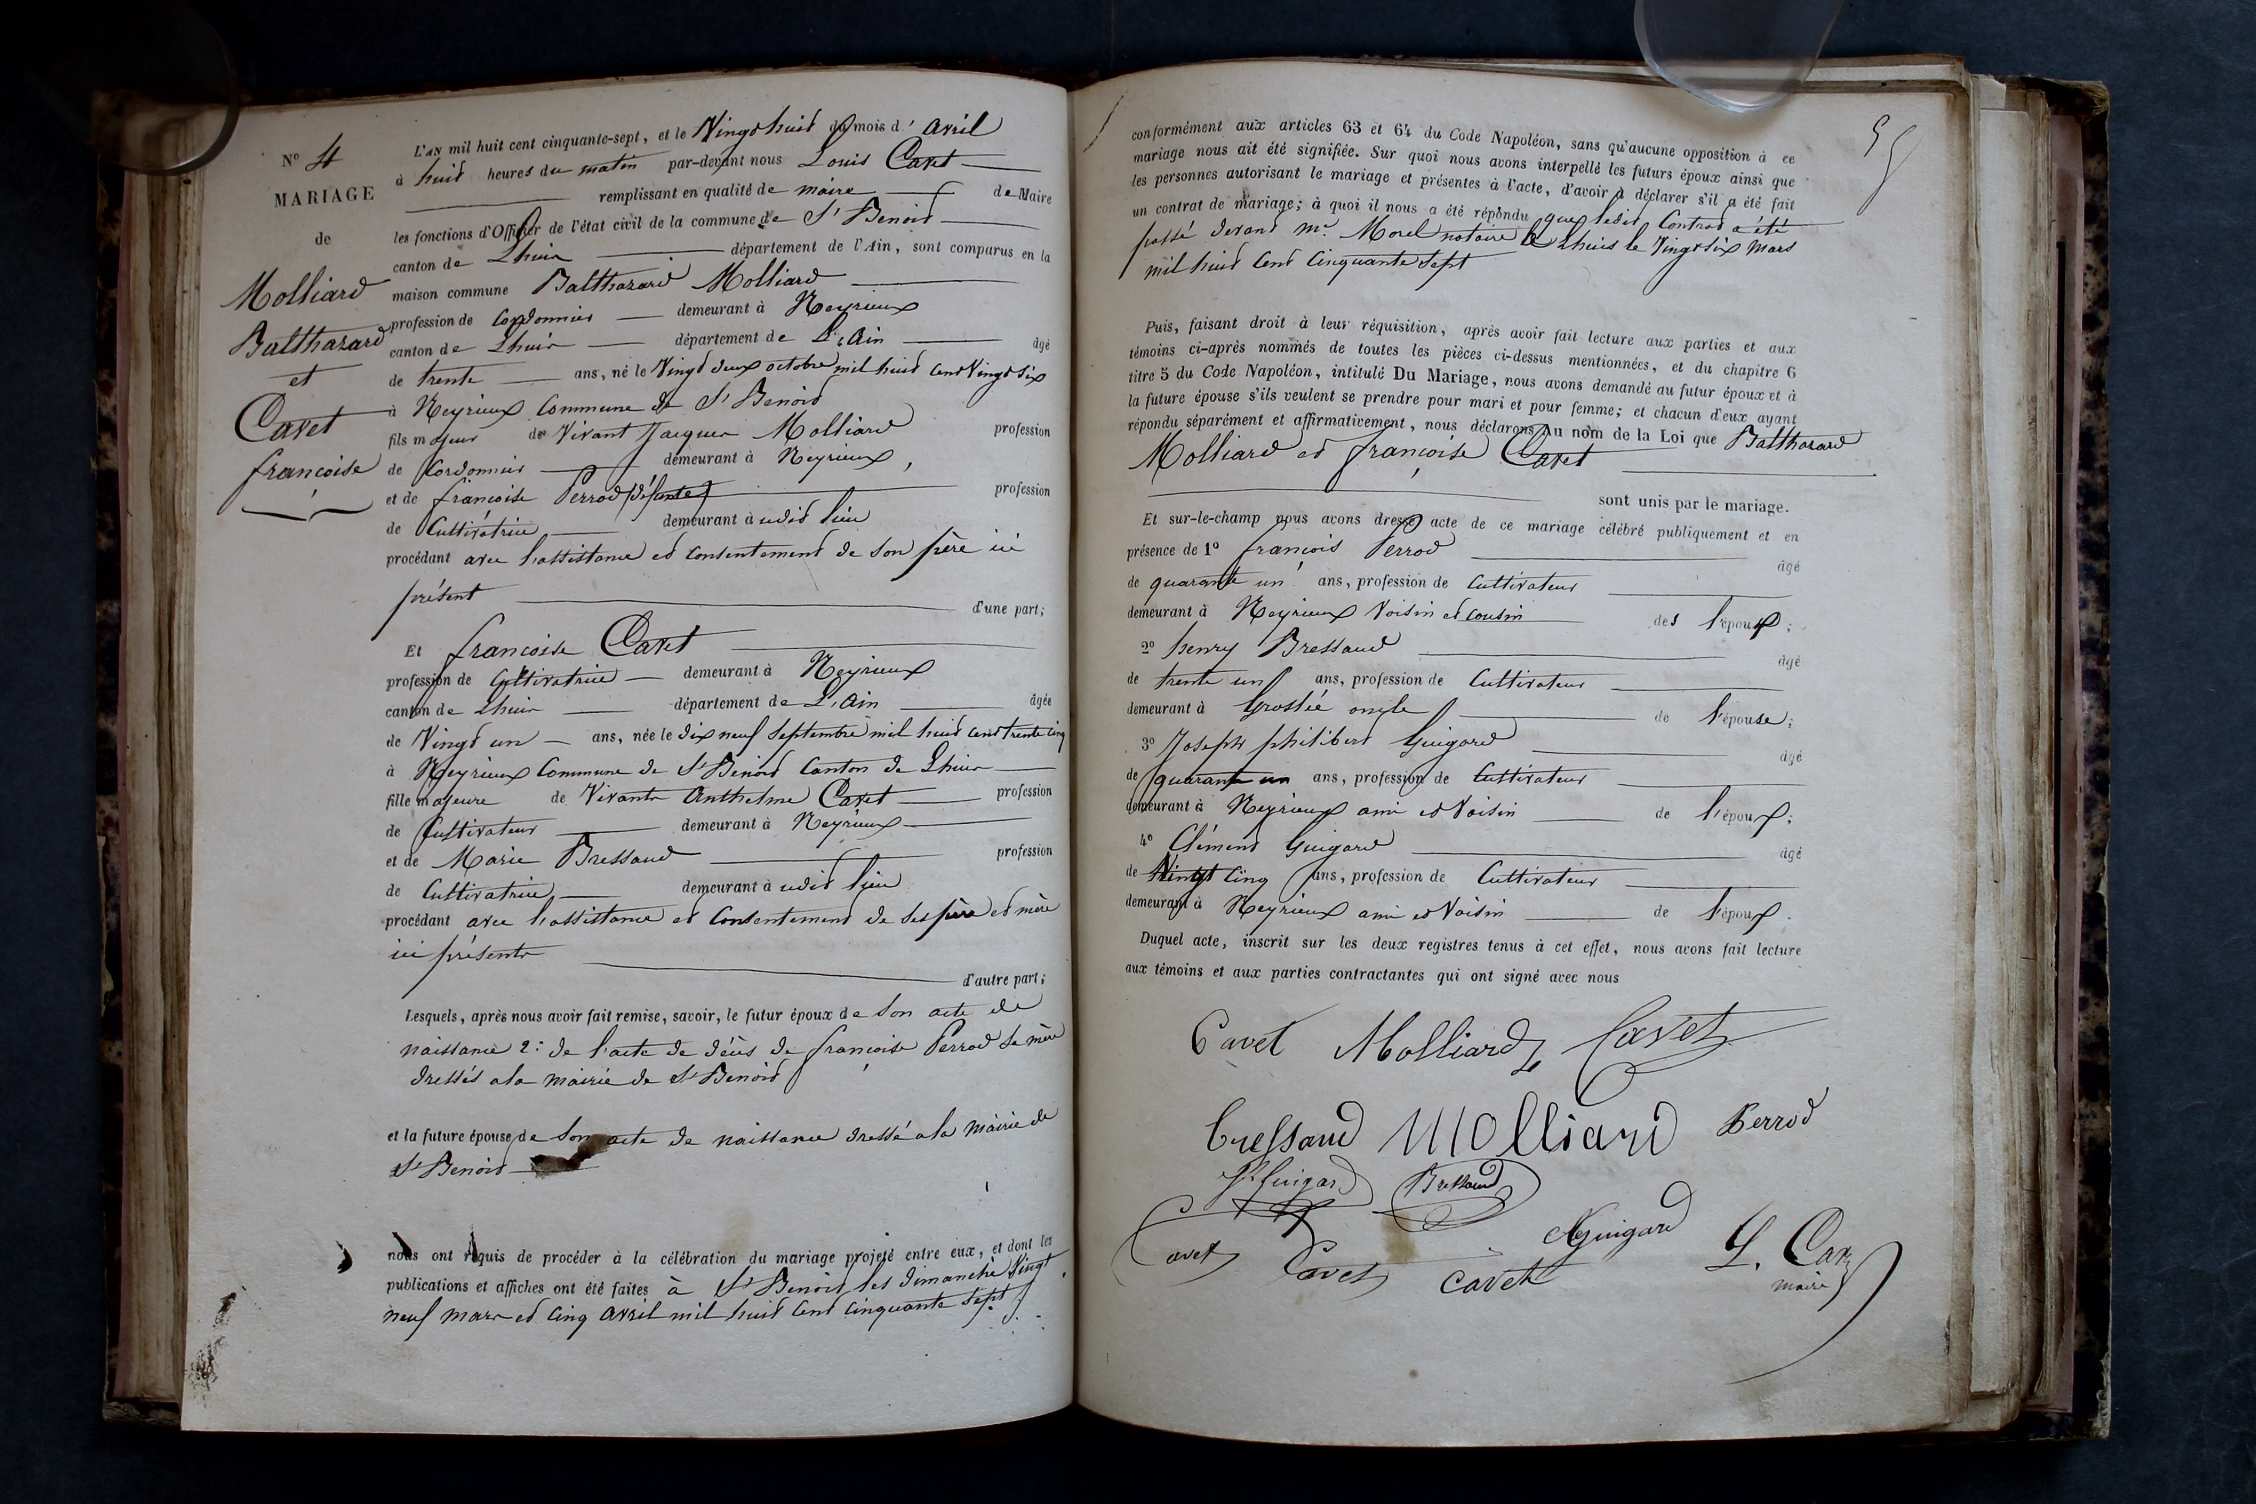 N° 4
MARIAGE
de
Molliard
Balthazard
et
Cavet
françoise
L'AN mil huit cent cinquante-sept, et le Vingt huit du mois d'avril
à huit heures du matin par-devant nous Louis Cavet
remplissant en qualité de maire de Maire
les fonctions d'Officier de l'état civil de la commune de St Benoit
canton de Lhuis département de l'Ain, sont comparus en la
maison commune Balthazard Molliard
profession de Cordonnier demeurant à Neyrieux
canton de Lhuis département de L'Ain âgé
de trente ans, né le Vingt deux octobre mil huit cent Vingt six
à Neyrieux Commune de St Benoit
fils majeur de Vivant Jacques Molliard profession
de Cordonnier demeurant à Neyrieux,
et de françoise Perrod (défunte) profession
de Cultivatrice demeurant à udit lieu
procédant avec l'assistance et consentement de son père ici
présent d'une part;
Et francoise Cavet
profession de Cultivatrice demeurant à Neyrieux
canton de Lhuis département de L'Ain âgée
de Vingt un ans, née le dix neuf Septembre mil huit cent trente cinq
à Neyrieux Commune de St Benoit Canton de Lhuis
fille majeure de Vivants Anthelme Cavet profession
de Cultivateur demeurant à Neyrieux
et de Marie Bressaud profession
de Cultivatrice demeurant à udit lieu
procédant avec l'assistance et Consentement de ses père et mère
ici présents
d'autre part;
Lesquels, après nous avoir fait remise, savoir, le futur époux de son acte de
naissance 2: de l'acte de décès de françoise Perrod sa mère
dressés a la mairie de St Benoit
et la future épouse de son acte de naissance dressé a la mairie de
St Benoit
nous ont requis de procéder à la célébration du mariage projeté entre eux, et dont les
publications et affiches ont été faites à St Benoit les dimanche Vingt
neuf mars et cinq avril mil huit cent cinquante sept
conformément aux articles 63 et 64 du Code Napoléon, sans qu'aucune opposition à ce
mariage nous ait été signifiée. Sur quoi nous avons interpellé les futurs époux ainsi que
les personnes autorisant le mariage et présentes à l'acte, d'avoir à déclarer s'il a été fait
un contrat de mariage; à quoi il nous a été répondu que ledit Contrat a été
passé devant me Morel notaire à Lhuis le Vingt six mars
mil huit cent cinquante sept
Puis, faisant droit à leur réquisition, après avoir fait lecture aux parties et aux
témoins ci-après nommés de toutes les pièces ci-dessus mentionnées, et du chapitre 6
titre 5 du Code Napoléon, intitulé Du Mariage, nous avons demandé au futur époux et à
la future épouse s'ils veulent se prendre pour mari et pour femme; et chacun d'eux ayant
répondu séparément et affirmativement, nous déclarons Au nom de la Loi que Balthazard
Molliard et françoise Cavet
sont unis par le mariage.
Et sur-le-champ nous avons dressé acte de ce mariage célébré publiquement et en
présence de 1° françois Perrod âgé
de quarante un ans, profession de Cultivateur
demeurant à Neyrieux Voisin et cousin des l'époux;
2° henry Bressaud âgé
de trente un ans, profession de Cultivateur
demeurant à Groslée oncle de l'épouse;
3° Joseph philibert Guigard âgé
de quarante un ans, profession de Cultivateur
demeurant à Neyrieux ami et Voisin de l'époux;
4° Clément Guigard âgé
de Vingt cinq ans, profession de Cultivateur
demeurant à Neyrieux ami et Voisin de l'époux.
Duquel acte, inscrit sur les deux registres tenus à cet effet, nous avons fait lecture
aux témoins et aux parties contractantes qui ont signé avec nous
Cavet Molliard Cavet
bressaud Molliard Perrod
Guigard Bressaud
Cavet Cavet Cavet Guigard L. Cavet
maire